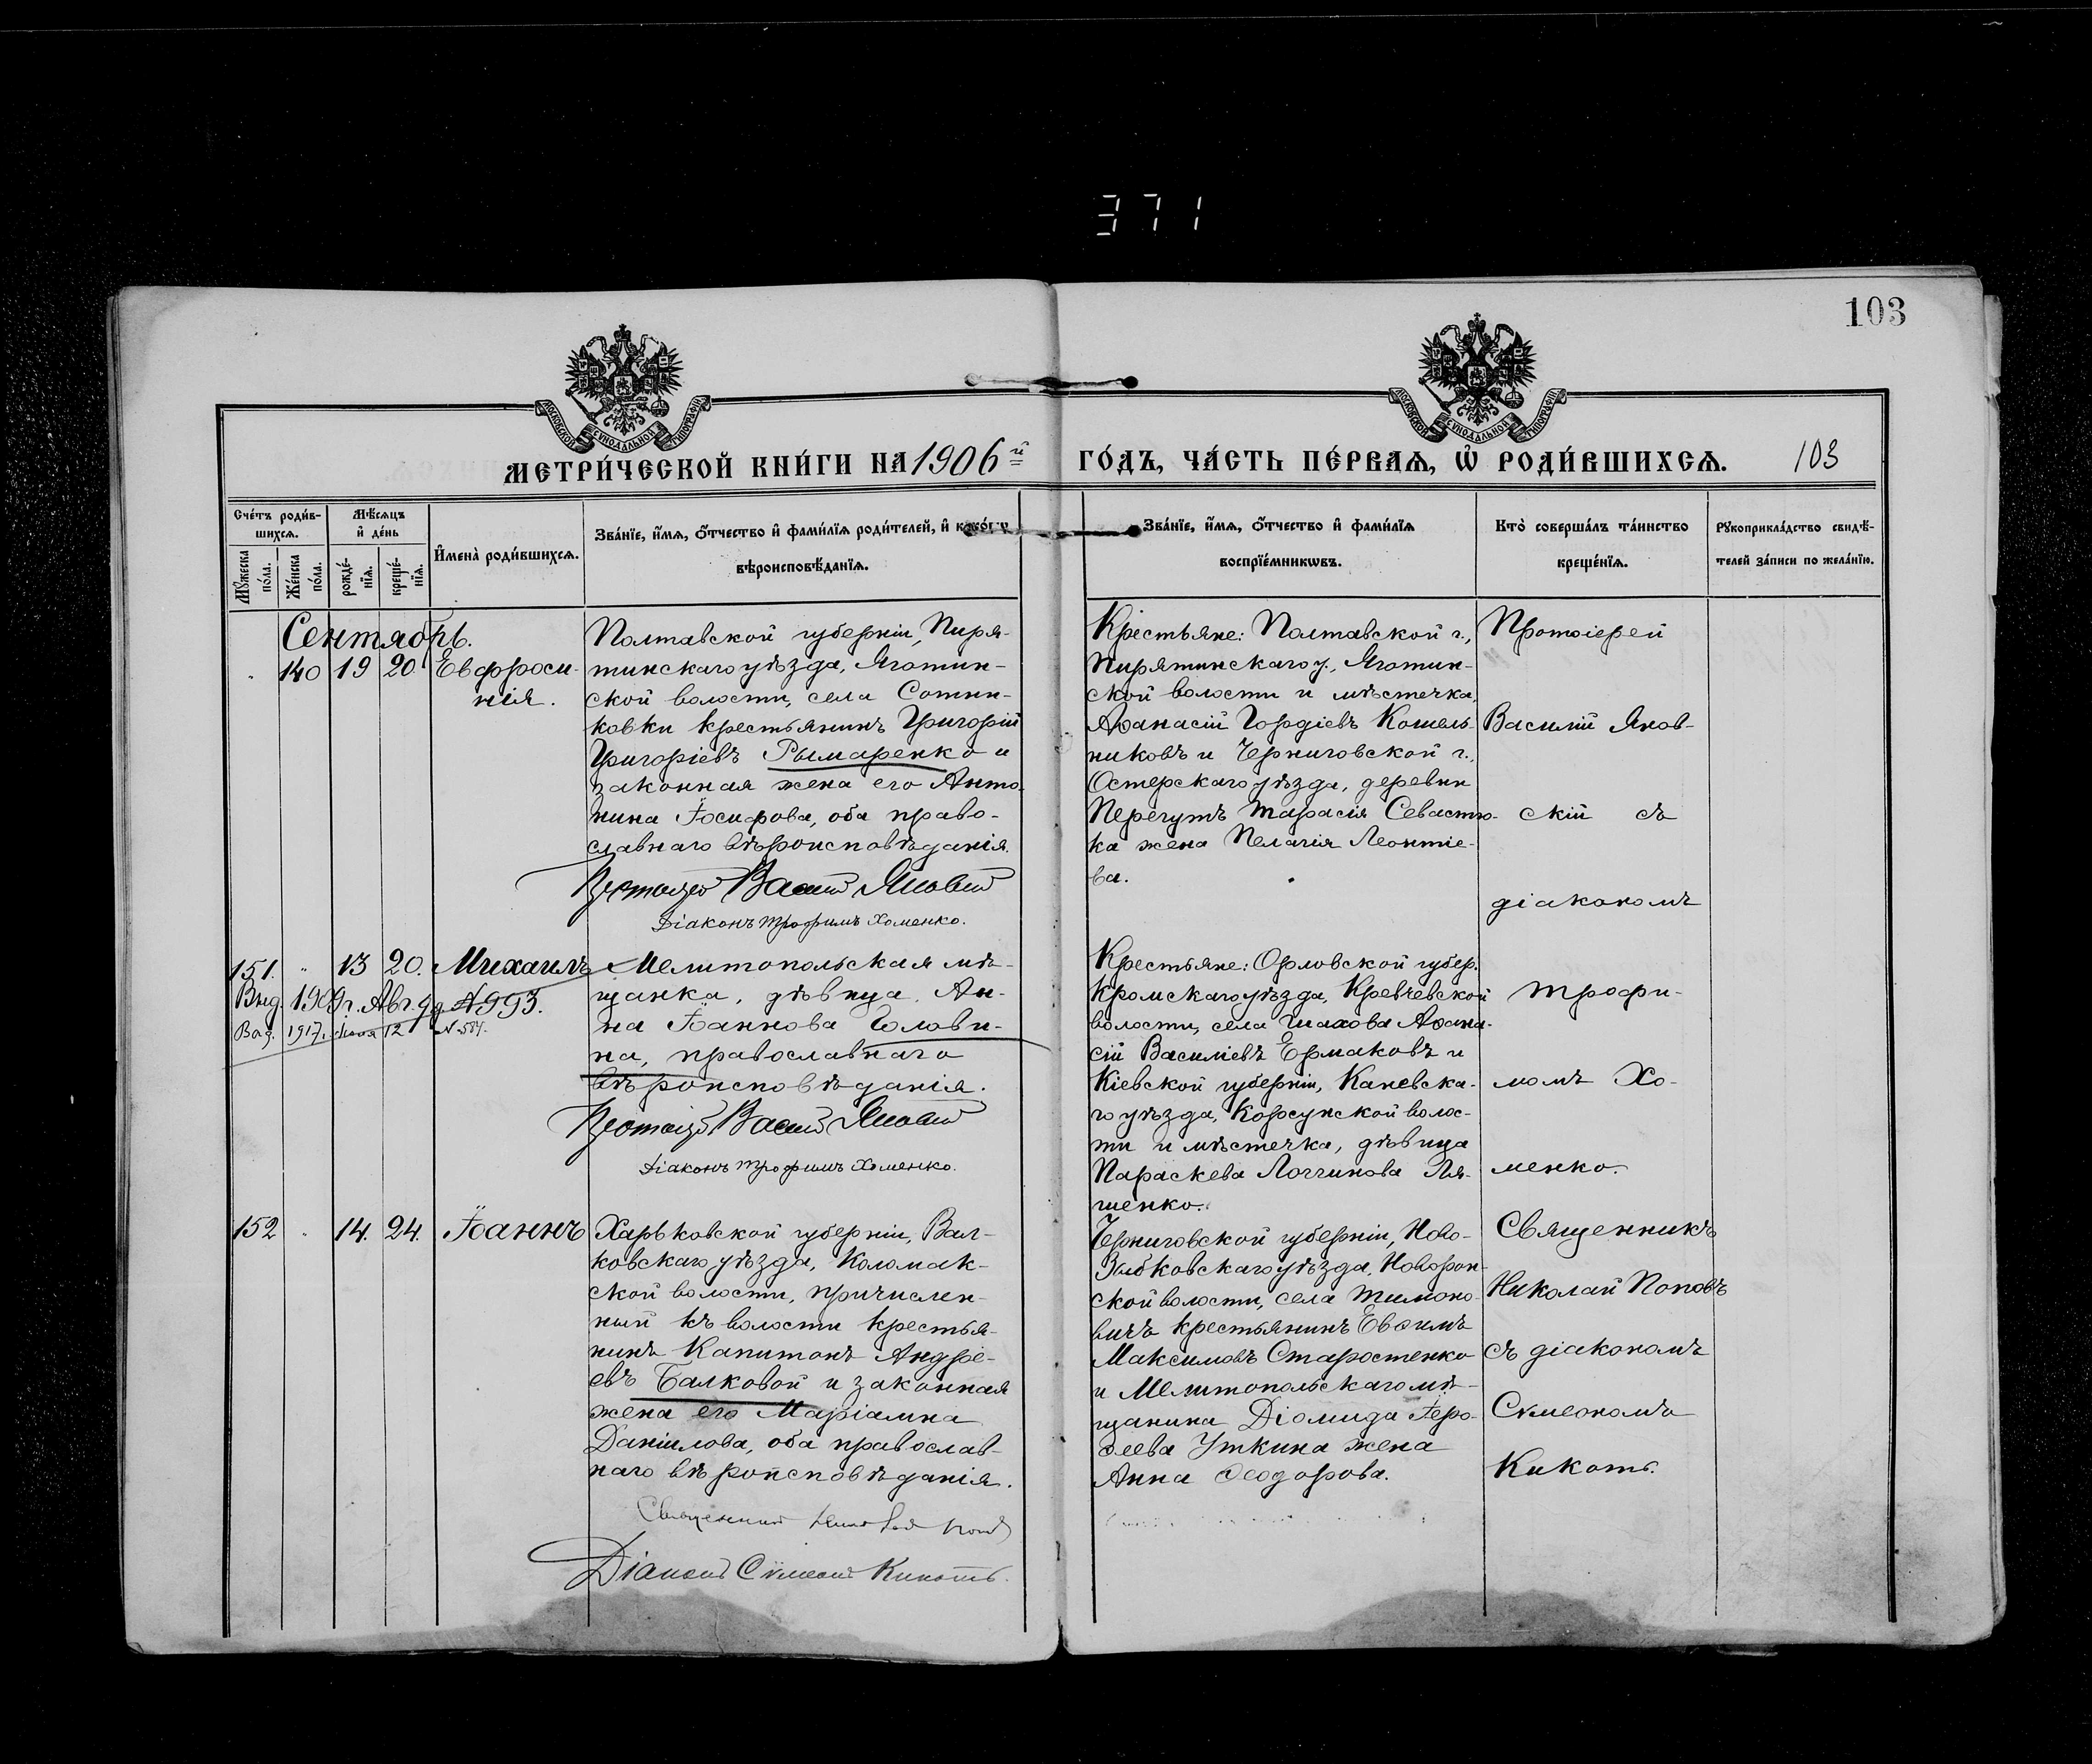 371
103
МОСКОВСКОЙ СУНОДАЛЬНОЙ ТИПОГРАФІИ
МОСКОВСКОЙ СУНОДАЛЬНОЙ ТИПОГРАФІИ
МЕТРИ́ЧЕСКОЙ КНИ́ГИ НА 1906й
ГО́ДЪ, ЧА́СТЬ ПЕ́РВАѦ, Ѡ҆ РОДИ́ВШИХСѦ.
103
Сче́тъ роди́в-
шихсѧ.
Мꙋ́жеска по́ла.
Же́нска по́ла.
Мѣ́сѧцъ
и҆ де́нь
рожде́-
нїѧ.
креще́-
нїѧ.
И҆мена̀ роди́вшихсѧ.
Зва́нїе, и҆́мѧ, о҆́тчество и҆ фами́лїѧ роди́телей, и҆ како́гѡ
вѣроисповѣ́данїѧ.
Зва́нїе, и҆́мѧ, о҆́тчество и҆ фами́лїѧ
воспрїе́мникѡвъ.
Кто̀ соверша́лъ та́инство
креще́нїѧ.
Рꙋкоприкла́дство свидѣ́-
телей за́писи по жела́нїю.
Сентябрь.
140 19 20 Евфроси-
нія.
Полтавской губерніи, Пиря-
тинскаго уѣзда, Яготин-
ской волости, села Сотни-
ковки крестьянинъ Григорій
Григоріевъ Рымаренко и
законная жена его Анто-
нина Іосифова, оба право-
славнаго вѣроисповѣданія.
Протоіерей Василій Яновскій
Діаконъ Трофимъ Хоменко.
Крестьяне: Полтавской г.,
Пирятинскаго у., Яготин-
ской волости и мѣстечка,
Аѳанасій Гордіевъ Кошель-
никовъ и Черниговской г.,
Остерскаго уѣзда, деревни
Перегутъ Тарасія Севастю-
ка жена Пелагія Леонтіе-
ва.
Протоіерей
Василій Янов-
скій съ
діакономъ
151. " 13 20. Михаилъ
Выд. 1909 г. Авг. 9 д. №993.
Выд. 1917 г. 12 №584.
Мелитопольская мѣ-
щанка, дѣвица, Ан-
на Іоаннова Голови-
на, православнаго
вѣроисповѣданія.
Протоіерей Василій Яновскій
Діаконъ Трофимъ Хоменко.
Крестьяне: Орловской губер.
Кромскаго уѣзда, Кревчевской
волости, села Шахова Аѳана-
сій Василіевъ Ермаковъ и
Кіевской губерніи, Каневска-
го уѣзда, Корсунской волос-
ти и мѣстечка, дѣвица
Параскева Логгинова Ля-
шенко.
Трофи-
момъ Хо-
менко.
152 14. 24. Іоаннъ
Харьковской губерніи, Вал-
ковскаго уѣзда, Коломак-
ской волости, причислен-
ный къ волости крестья-
нинъ Капитонъ Андрі-
евъ Балковой и законная
жена его Маріамна
Даніилова, оба православ-
наго вѣроисповѣданія.
Священникъ Николай Поповъ
Діаконъ Сѵмеонъ Кикоть.
Черниговской губерніи, Ново-
Зыбковскаго уѣзда, Новоропн-
ской волости, села Тимоно-
вичъ крестьянинъ Евѳимъ
Максимовъ Старостенко
и Мелитопольскаго мѣ-
щанина Діомида Іеро-
ѳеева Уткина жена
Анна Ѳеодорова.
Священникъ
Николай Поповъ
съ діакономъ
Сѵмеономъ
Кикоть.